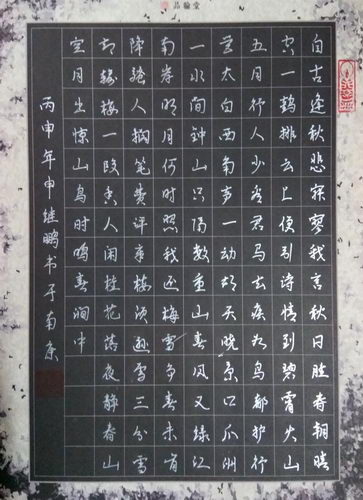 品翰堂
自古逢秋悲寂寥我言秋日胜春朝晴
空一鹤排云上便引诗情到碧霄火山
五月行人少看君马去疾如鸟都护行
营太白西角声一动胡天晓京口瓜洲
一水间钟山只隔数重山春风又绿江
南岸明月何时照我还梅雪争春未肯
降骚人搁笔费评章梅须逊雪三分雪
却输梅一段香人闲桂花落夜静春山
空月出惊山鸟时鸣春涧中
丙申年申继鹏书于南京